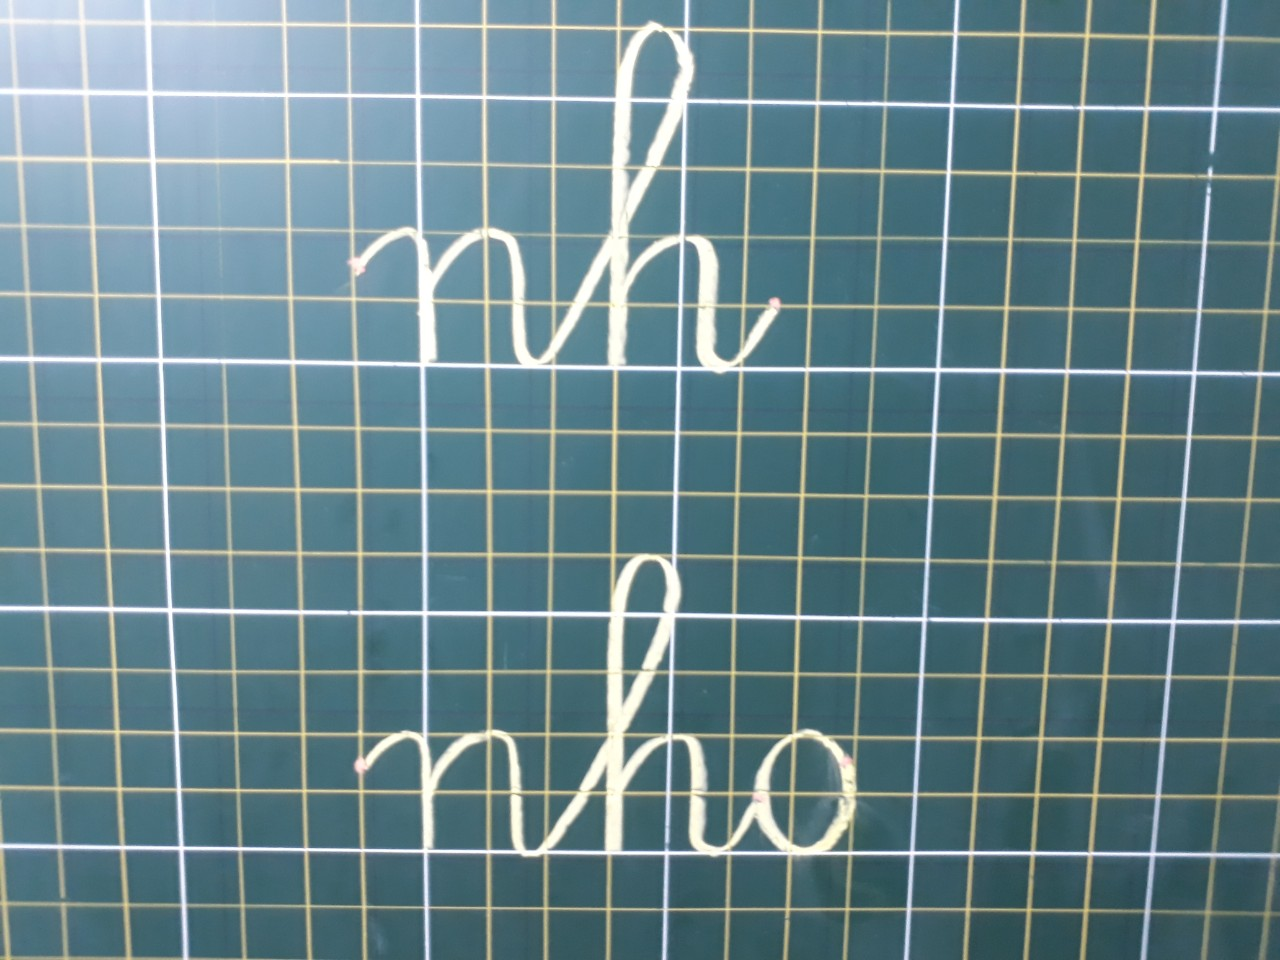 nh
nho